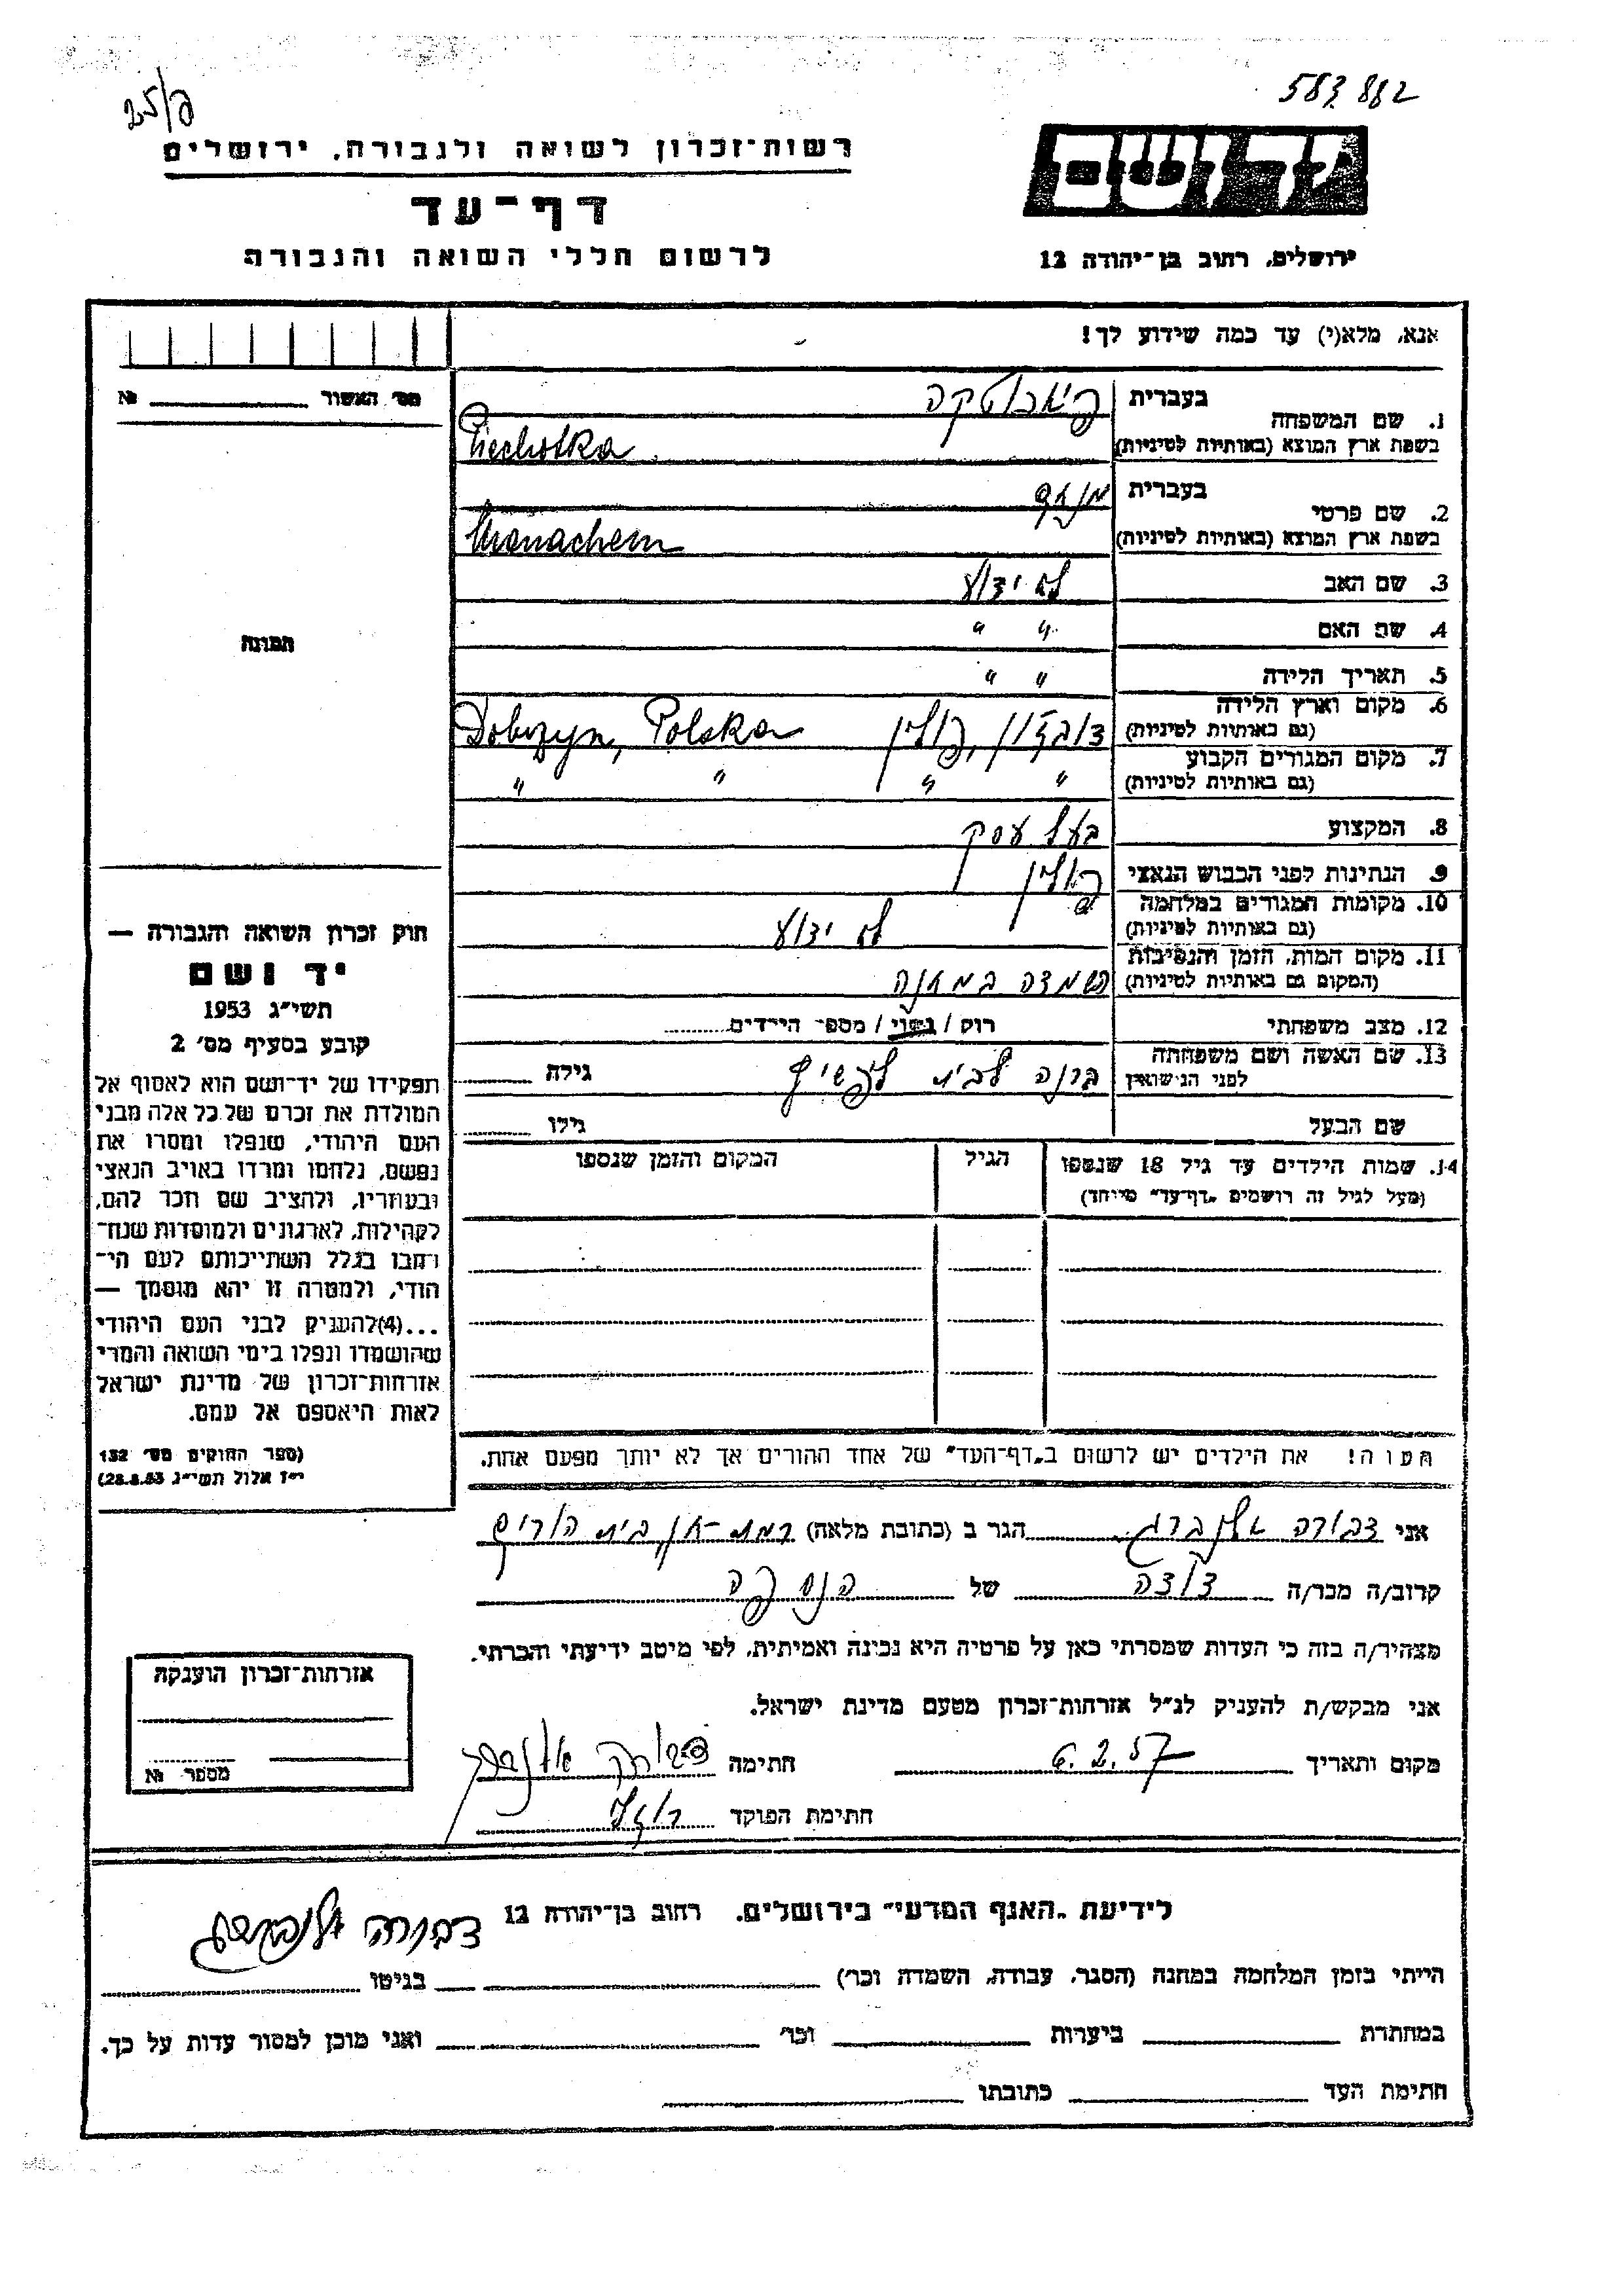 583882
25/
רשות־זכרון לשואה ולגבורה, ירושלים
דף־עד
לרשום חללי השואה והגבורה
יד ושם
ירושלים, רחוב בן־יהודה 12
אנא, מלא(י) עד כמה שידוע לך!
מס׳ האשור № ________
1. שם המשפחה בעברית פיאכוטקה
בשפת ארץ המוצא (באותיות לטיניות) Piechotka
2. שם פרטי בעברית מנחם
בשפת ארץ המוצא (באותיות לטיניות) Menachem
3. שם האב לא ידוע
4. שם האם " "
5. תאריך הלידה " "
6. מקום וארץ הלידה (גם באותיות לטיניות) דובז'ין, פולין Dobrzyn, Polska
7. מקום המגורים הקבוע (גם באותיות לטיניות) " " " "
8. המקצוע בעל עסק
9. הנתינות לפני הכבוש הנאצי פולין
10. מקומות המגורים במלחמה (גם באותיות לטיניות) לא ידוע
11. מקום המות, הזמן והנסיבות (המקום גם באותיות לטיניות) השמדה במחנה
12. מצב משפחתי רוק / נשוי / מספר הילדים
13. שם האשה ושם משפחתה לפני הנישואין ברנה לבית גילה
שם הבעל גילו
14. שמות הילדים עד גיל 18 שנספו הגיל המקום והזמן שנספו
(מעל לגיל זה רושמים „דף־עד״ מיוחד)
התמונה
חוק זכרון השואה והגבורה —
יד ושם
תשי״ג 1953
קובע בסעיף מס׳ 2
תפקידו של יד־ושם הוא לאסוף אל
המולדת את זכרם של כל אלה מבני
העם היהודי, שנפלו ומסרו את
נפשם, נלחמו ומרדו באויב הנאצי
ובעוזריו, ולהציב שם וזכר להם,
לקהילות, לארגונים ולמוסדות שנח־
רבו בגלל השתייכותם לעם הי־
הודי, ולמטרה זו יהא מוסמך —
...(4)להעניק לבני העם היהודי
שהושמדו ונפלו בימי השואה והמרי
אזרחות־זכרון של מדינת ישראל
לאות היאספם אל עמם.
(ספר החוקים מס׳ 132
י״ז אלול תשי״ג 28.8.53)
הערה! את הילדים יש לרשום ב„דף־העד״ של אחד ההורים אך לא יותר מפעם אחת.
אני דבורה אלנברג הגר ב (כתובת מלאה) רמת-גן, בית הורים
קרוב/ה מכר/ה דודה של הנספה
מצהיר/ה בזה כי העדות שמסרתי כאן על פרטיה היא נכונה ואמיתית, לפי מיטב ידיעתי והכרתי.
אני מבקש/ת להעניק לנ״ל אזרחות־זכרון מטעם מדינת ישראל.
מקום ותאריך 6.2.57 חתימה דבורה אלנברג
חתימת הפוקד
אזרחות־זכרון הוענקה
מספר №
לידיעת „האגף המדעי״ בירושלים, רחוב בן־יהודה 12 דבורה אלנברג
הייתי בזמן המלחמה במחנה (הסגר, עבודה, השמדה וכו׳) ________ בגיטו ________
במחתרת ________ ביערות ________ וכו׳ ________ ואני מוכן למסור עדות על כך.
חתימת העד ________ כתובתו ________